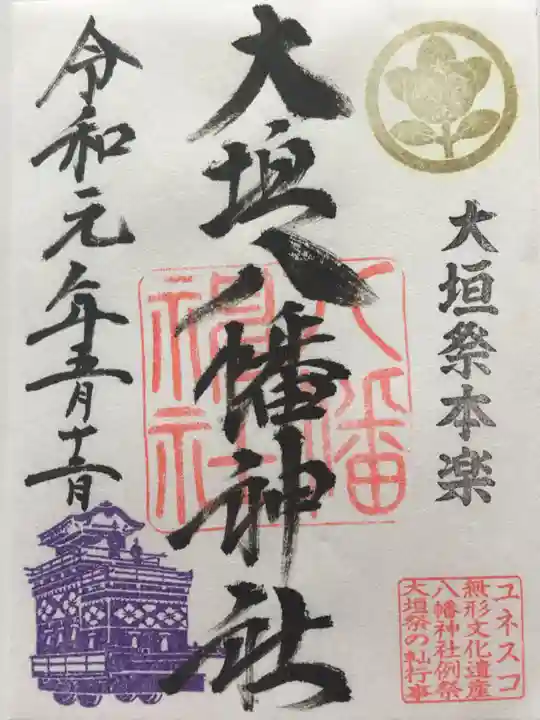 大垣祭本楽
大垣八幡神社
令和元年五月十二日
八幡
神社
ユネスコ
無形文化遺産
八幡神社例祭
大垣祭の軕行事